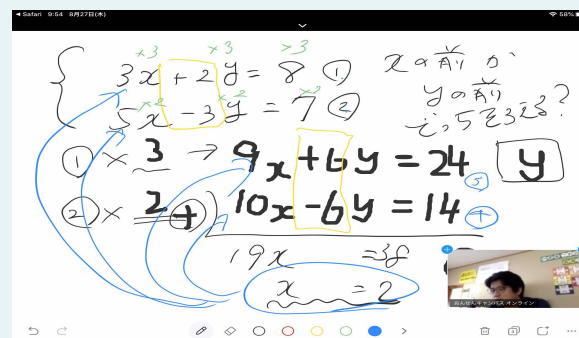 Safari 9:54 8月27日(木)
58%
×3 ×3 ×3
3x + 2y = 8 ①
×2 ×2 ×2
5x - 3y = 7 ②
xの前か
yの前
どっちをそろえる?
① × 3 → 9x + 6y = 24 ③
y
② × 2 + 10x - 6y = 14 ④
19x = 38
x = 2
おんせんキャンパス オンライン